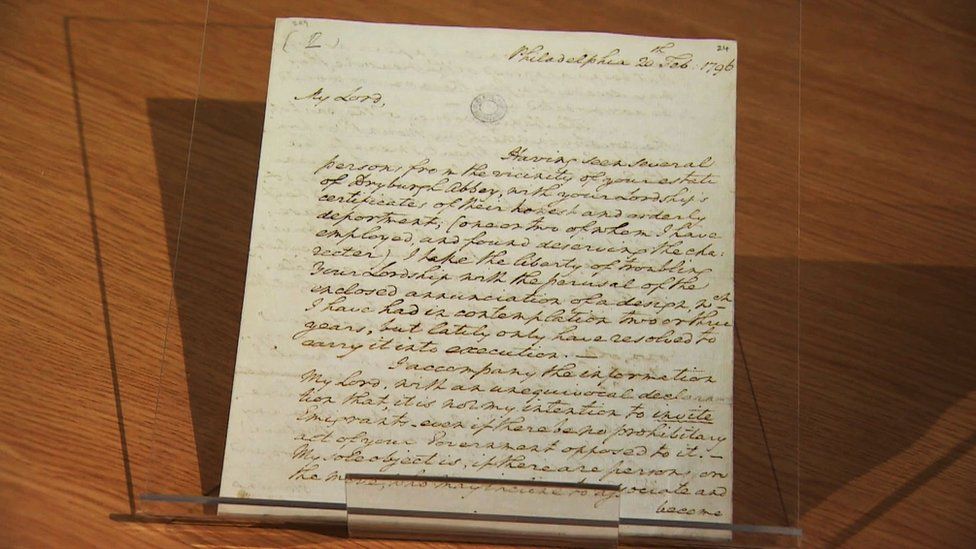 249
24
( 2 )
Philadelphia 20th Feb: 1796
My Lord,
Having seen several
persons from the vicinity of your estate
of Dryburgh Abbey, with your Lordship's
certificates of their honest and orderly
deportment; (one or two of whom I have
employed, and found deserving the cha-
racter) I take the liberty of troubling
Your Lordship with the perusal of the
inclosed annunciation of a design wch
I have had in contemplation two or three
years, but lately only have resolved to
carry it into execution.—
I accompany the information
My Lord, with an unequivocal declara-
tion that, it is not my intention to invite
Emigrants - even if there be no prohibitory
act of your Government opposed to it.—
My sole object is, if there are persons on
the move, who may incline to associate and
become